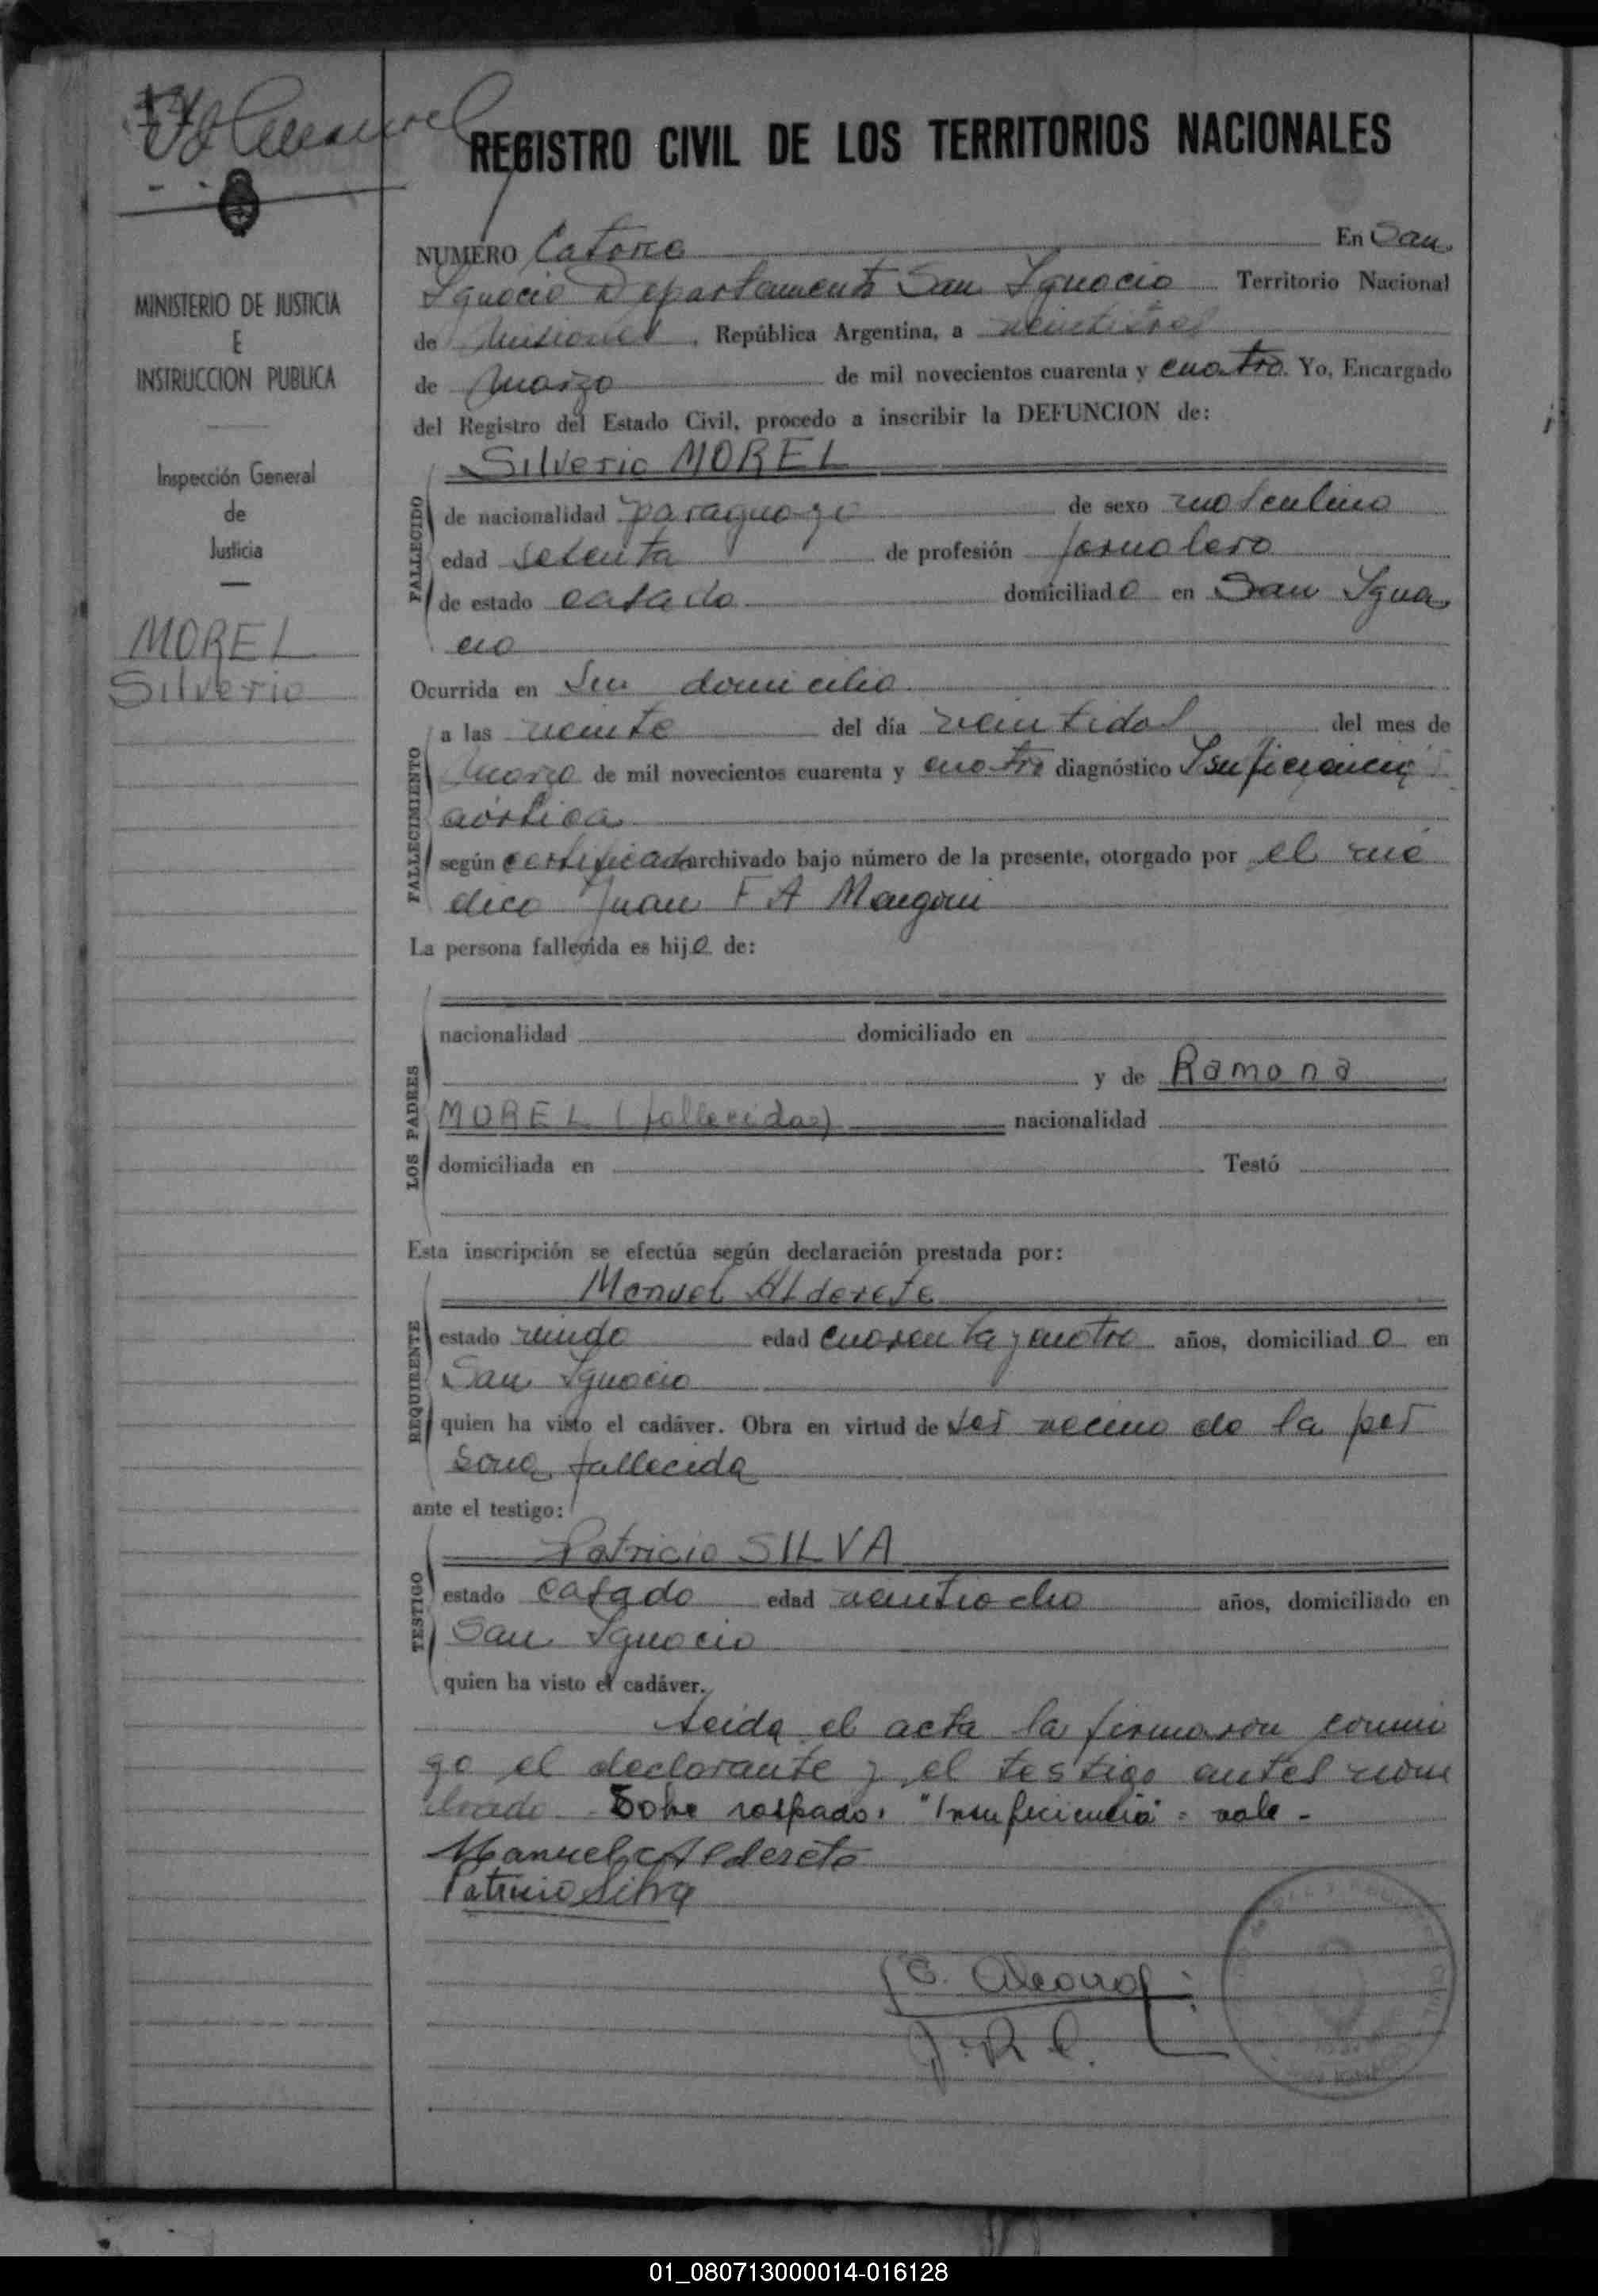 REGISTRO CIVIL DE LOS TERRITORIOS NACIONALES
MINISTERIO DE JUSTICIA
E
INSTRUCCION PUBLICA
Inspección General
de
Justicia
MOREL
Silverio
NUMERO Catorce En San
Ignacio Departamento San Ignacio Territorio Nacional
de Misiones, República Argentina, a veintitres
de marzo de mil novecientos cuarenta y cuatro. Yo, Encargado
del Registro del Estado Civil, procedo a inscribir la DEFUNCION de:
Silverio MOREL
FALLECIDO
de nacionalidad paraguayo de sexo masculino
edad setenta de profesión jornalero
de estado casado domiciliado en San Igna
cio
Ocurrida en su domicilio
FALLECIMIENTO
a las veinte del día veintidos del mes de
marzo de mil novecientos cuarenta y cuatro diagnóstico Isuficiencia
aórtica
según certificado archivado bajo número de la presente, otorgado por el mé
dico Juan F A Mangoni
La persona fallecida es hijo de:
LOS PADRES
nacionalidad domiciliado en
y de Ramona
MOREL (fallecidas) nacionalidad
domiciliada en Testó
Esta inscripción se efectúa según declaración prestada por:
Manuel Alderete
REQUIRENTE
estado viudo edad cuarenta y cuatro años, domiciliado en
San Ignacio
quien ha visto el cadáver. Obra en virtud de ser vecino de la per
sona fallecida
ante el testigo:
Patricio SILVA
TESTIGO
estado casado edad veintiocho años, domiciliado en
San Ignacio
quien ha visto el cadáver.
Leida el acta la firmaron conmi
go el declarante y el testigo antes nom
brado. Sobre raspado: "Insuficiencia" = vale -
Manuel Alderete
Patricio Silva
J.R.C.
01_080713000014-016128